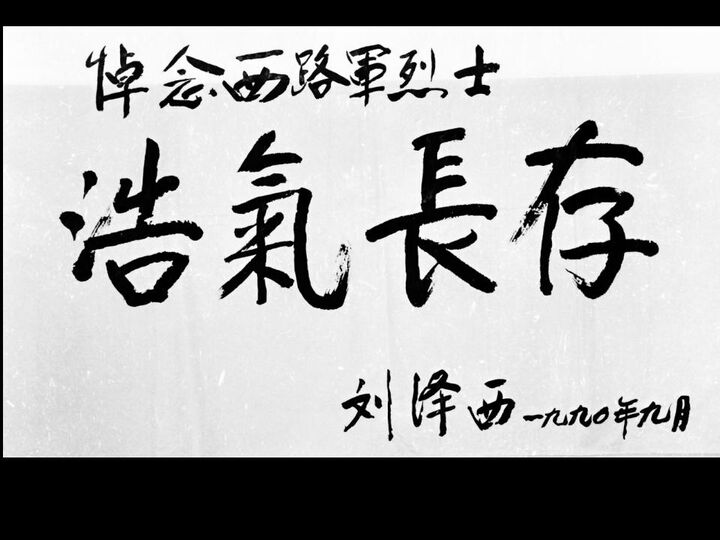 悼念西路軍烈士
浩氣長存
刘泽西 一九九〇年九月